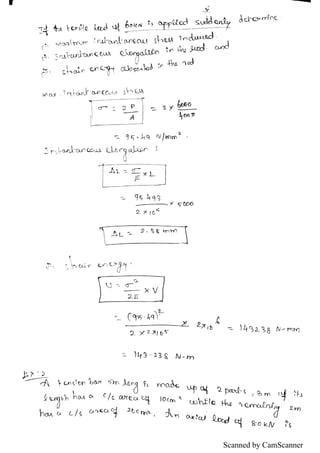 If the tensile load of 60KN is applied suddenly determine
1. maximum instantaneous stress Induced
2. Instantaneous elongation in the rod and
3. strain energy absorbed in the rod.
max. Instantaneous stress
σ = 2P/A = 2 × 6000/400π
= 95.49 N/mm².
Instantaneous Elongation :
ΔL = σ/E × L
= 95.493/2×10⁵ × 5000
ΔL = 2.38 mm
3. strain energy.
U = σ²/2E × V
= (95.49)²/2×2×10⁵ × 2π×10⁶ = 143238 N-mm
= 143.238 N-m
Ex: 2
A tension bar 5m long is made up of 2 parts, 3m of its
length has a c/s area of 10cm² while the remaining 2m
has a c/s area of 20cm². An axial load of 80KN is
Scanned by CamScanner